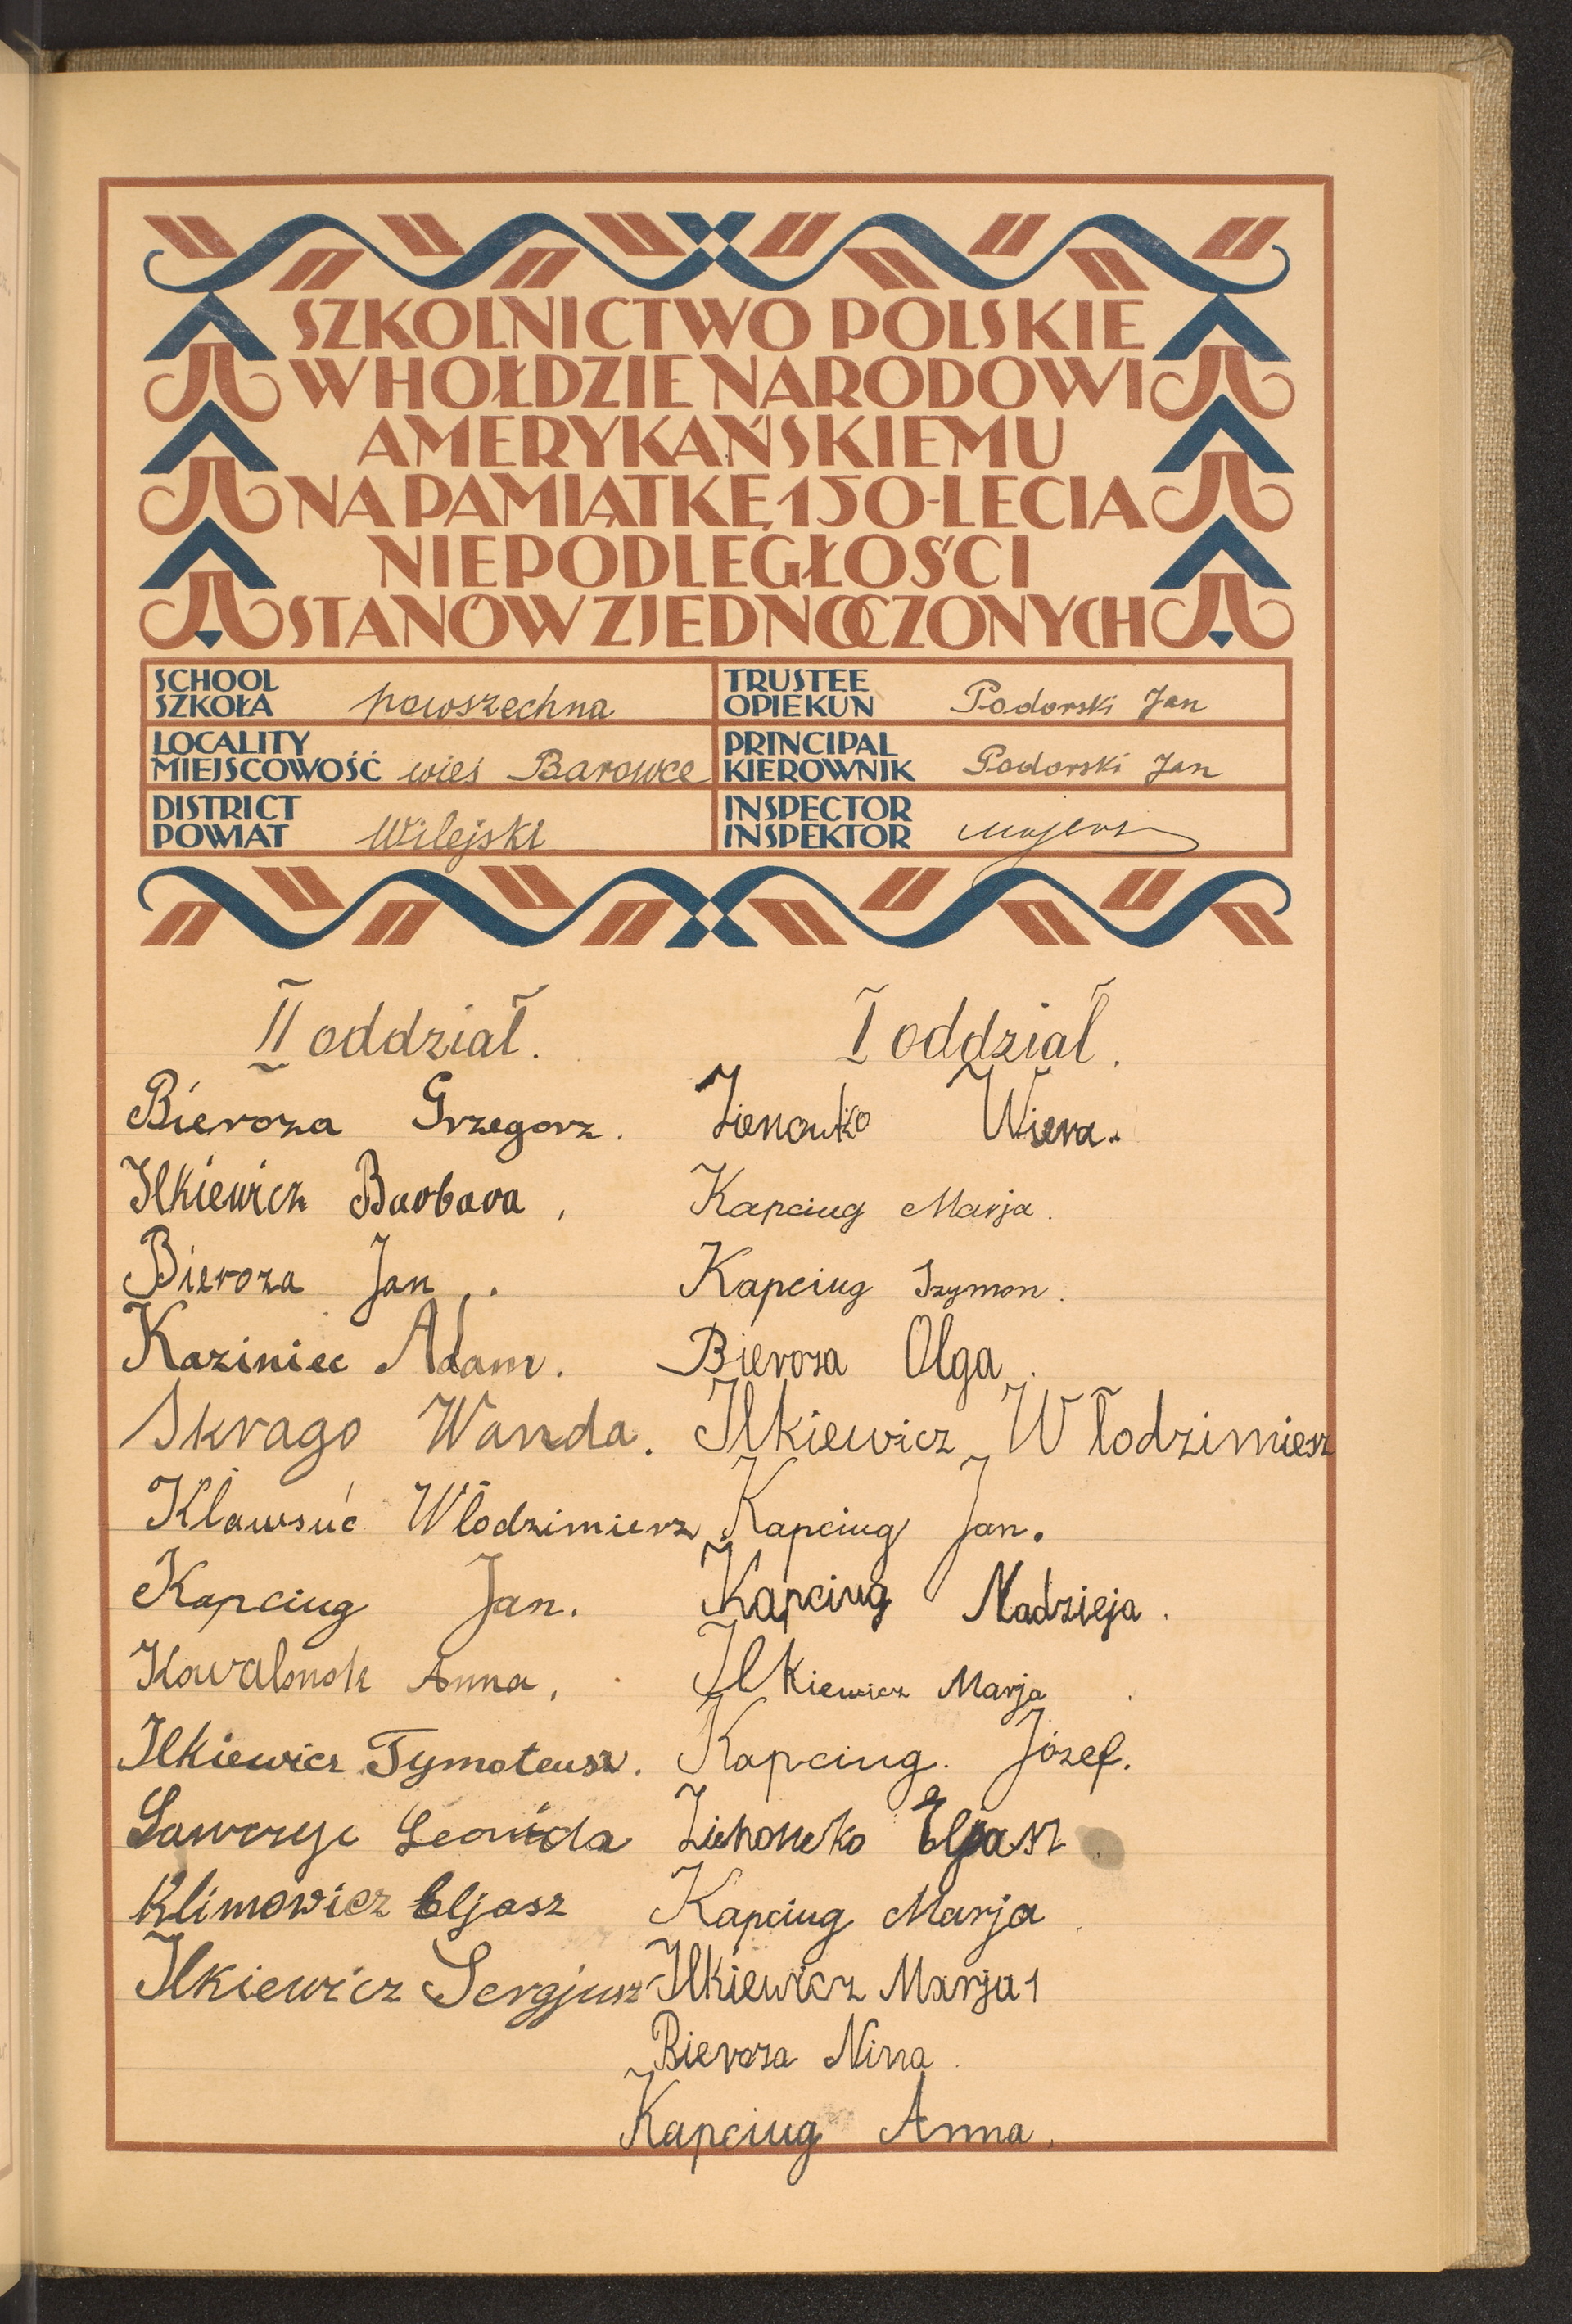 SZKOLNICTWO POLSKIE
W HOŁDZIE NARODOWI
AMERYKAŃSKIEMU
NA PAMIĄTKĘ 150-LECIA
NIEPODLEGŁOŚCI
STANÓW ZJEDNOCZONYCH
SCHOOL
SZKOŁA powszechna
TRUSTEE
OPIEKUN Podorski Jan
LOCALITY
MIEJSCOWOŚĆ wieś Barowce
PRINCIPAL
KIEROWNIK Podorski Jan
DISTRICT
POWIAT Wilejski
INSPECTOR
INSPEKTOR
II oddział.
Bieroza Grzegorz.
Ilkiewicz Barbara,
Bieroza Jan.
Kaziniec Adam.
Skrago Wanda.
Kławsuć Włodzimierz
Kapciug Jan.
Kowalonok Anna,
Ilkiewicz Tymoteusz.
Leonida
Klimowicz Eljasz
Ilkiewicz Sergjusz
I oddział.
Zienowko Wiera.
Kapciug Marja.
Kapciug Szymon.
Bieroza Olga.
Ilkiewicz Włodzimiesz
Kapciug Jan.
Kapciug Nadzieja.
Ilkiewicz Marja.
Kapciug. Józef.
Zienowko Eljasz.
Kapciug Marja.
Ilkiewicz Marja 1
Bieroza Nina.
Kapciug Anna.